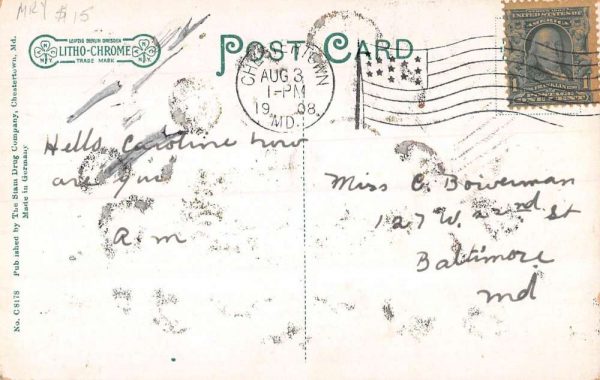 MRY $15
LEIPZIG BERLIN DRESDEN
LITHO-CHROME
TRADE MARK
POST CARD
CHESTERTOWN
AUG 3
1-PM
1908
MD.
UNITED STATES OF
AMERICA
FRANKLIN
Hello Caroline how
are you
R. m
Miss C. Bowerman
127 W. 22nd St
Baltimore
Md
Published by The Stam Drug Company, Chestertown, Md.
Made in Germany
No. C 8178